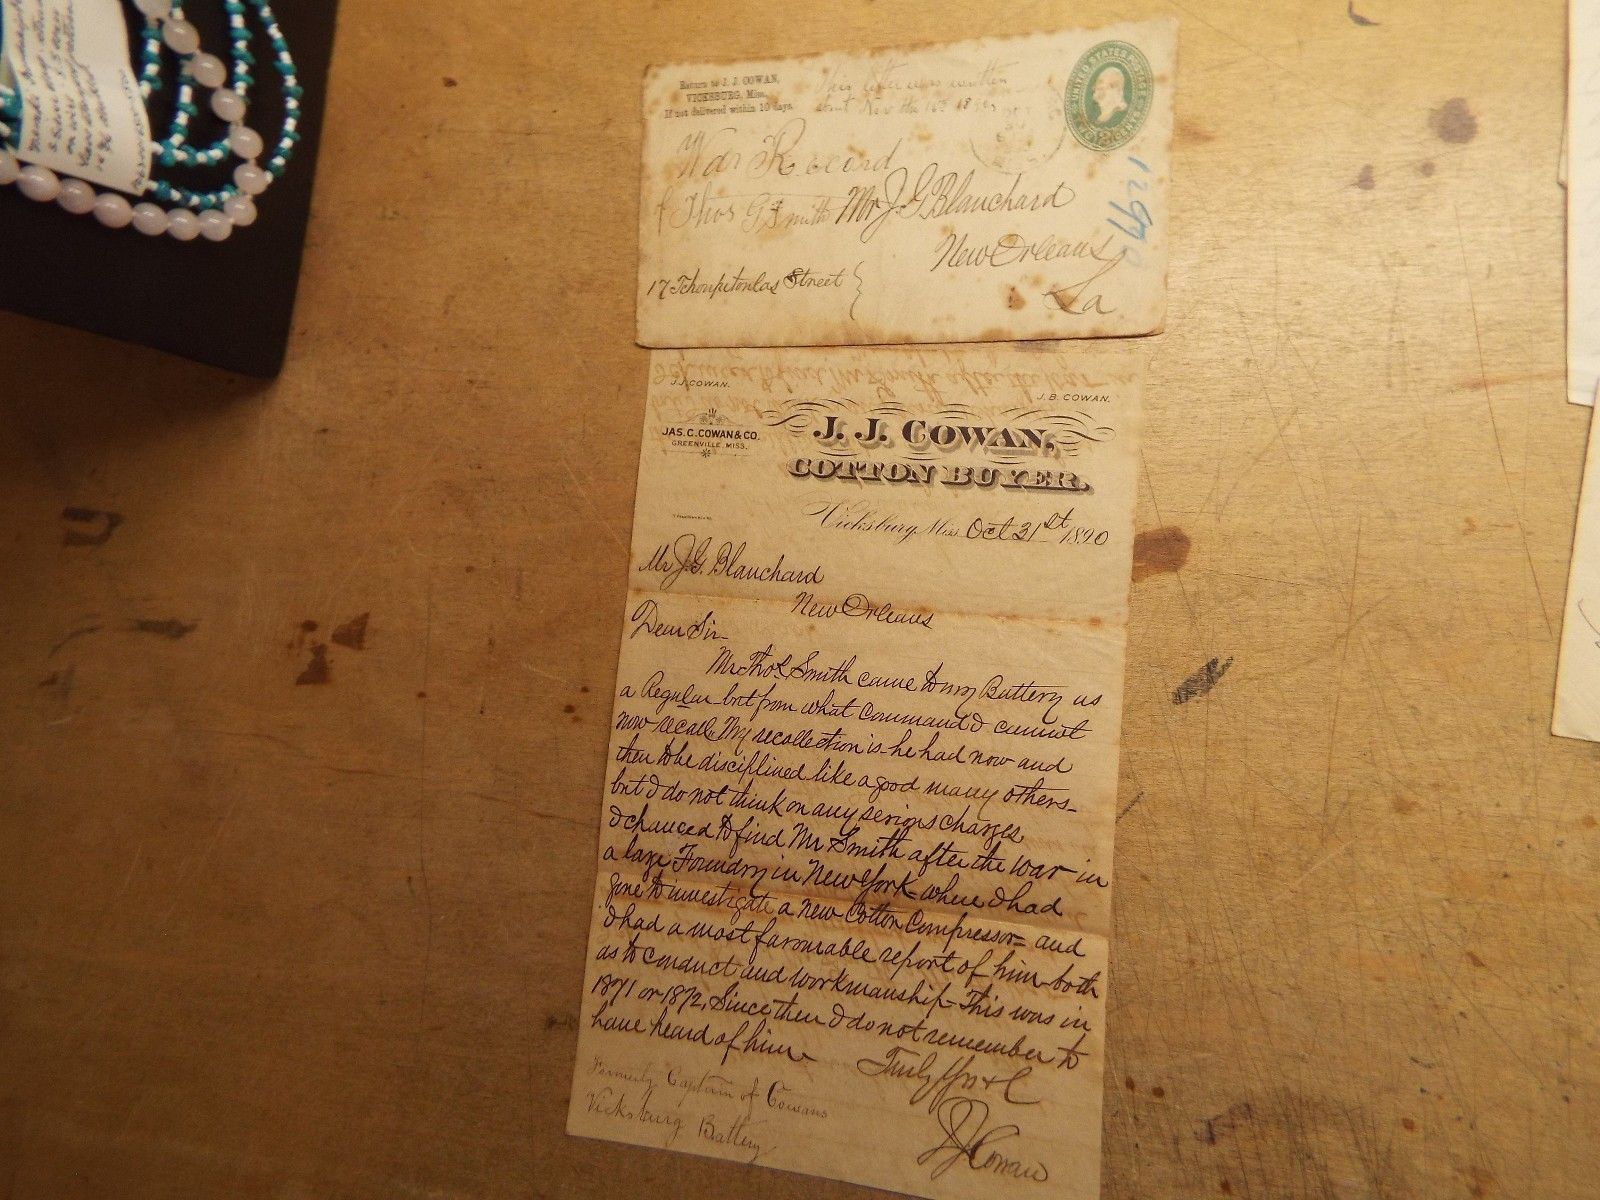 Return to J. J. COWAN,
VICKSBURG, Miss.
If not delivered within 10 days.
This letter was written
War Record
of Thos G Smith
Mr J. G. Blanchard
New Orleans
La
17 Tchoupitoulas Street
UNITED STATES POSTAGE
J. J. COWAN.
J. B. COWAN.
JAS. C. COWAN & CO.
GREENVILLE, MISS.
J. J. COWAN,
COTTON BUYER.
Vicksburg, Miss Oct 31st 1890
Mr J. G. Blanchard
New Orleans
Dear Sir-
Mr Thos. Smith came to my Battery as
a Regular but from what Command I cannot
now recall. My recollection is he had now and
then to be disciplined like a good many others-
but I do not think on any serious charges
I chanced to find Mr Smith after the war in
a large Foundry in New York- where I had
gone to investigate a new Cotton Compressor= and
I had a most favourable report of him-both
as to conduct and workmanship- This was in
1871 or 1872. Since then I do not remember to
have heard of him-
Truly Yrs &C
J J Cowan
Formerly Captain of Cowans
Vicksburg Battery